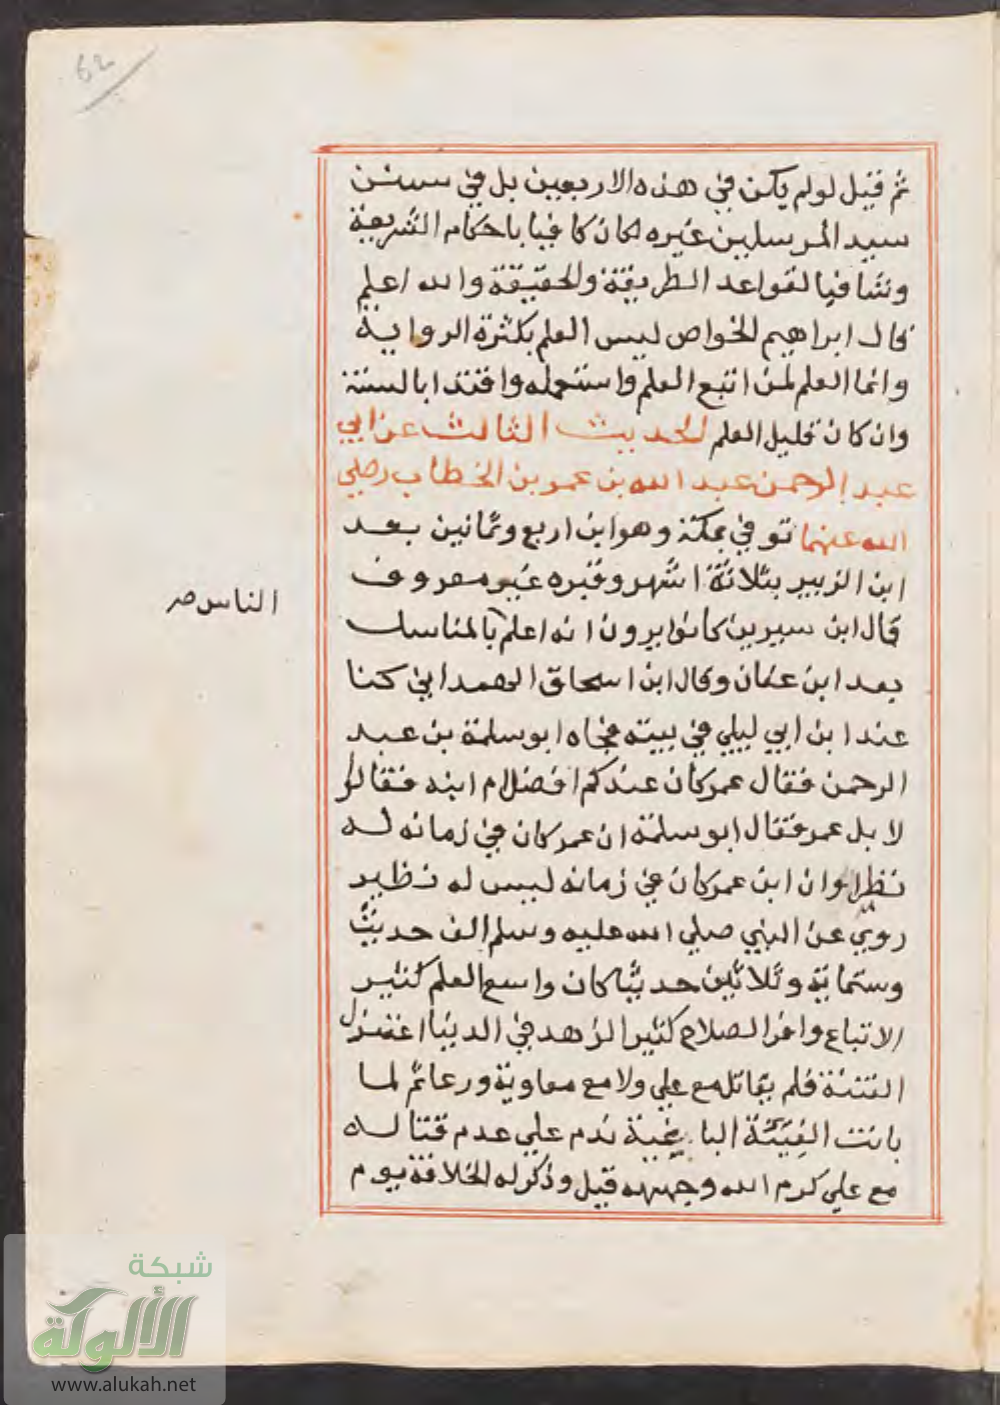 62
ثم قيل لو لم يكن في هذه الاربعين بل في سنن
سيد المرسلين غيره لكان كافيا باحكام الشريعة
وشافيا لقواعد الطريقة والحقيقة والله اعلم
قال ابراهيم الخواص ليس العلم بكثرة الرواية
وانما العلم لمن اتبع العلم واستعمله واقتدا بالسنة
وان كان قليل العلم الحديث الثالث عن ابي
عبد الرحمن عبد الله بن عمر بن الخطاب رضي
الله عنهما توفي بمكة وهو ابن اربع وثمانين بعد
ابن الزبير بثلاثة اشهر وقبره غير معروف
قال ابن سيرين كانوا يرون انه اعلم بالمناسك
الناس صح
بعد ابن عثمان وقال ابن اسحاق الهمداني كنا
عند ابن ابي ليلي في بيته فجاه ابو سلمة بن عبد
الرحمن فقال عمر كان عندكم افضل ام ابنه فقالوا
لا بل عمر فقال ابو سلمة ان عمر كان في زمانه له
نظرا وان ابن عمر كان في زمانه ليس له نظير
روي عن النبي صلي الله عليه وسلم الف حديث
وستماية وثلاثين حديثا كان واسع العلم كثير
الاتباع وافر الصلاح كثير الزهد في الدنيا اعتزل
الفتنة فلم يقاتل مع علي ولا مع معاوية ورعا ثم لما
بانت الفئة الباغية ندم علي عدم قتاله
مع علي كرم الله وجهه قيل وذكر له الخلافة يوم
شبكة
الألوكة
www.alukah.net